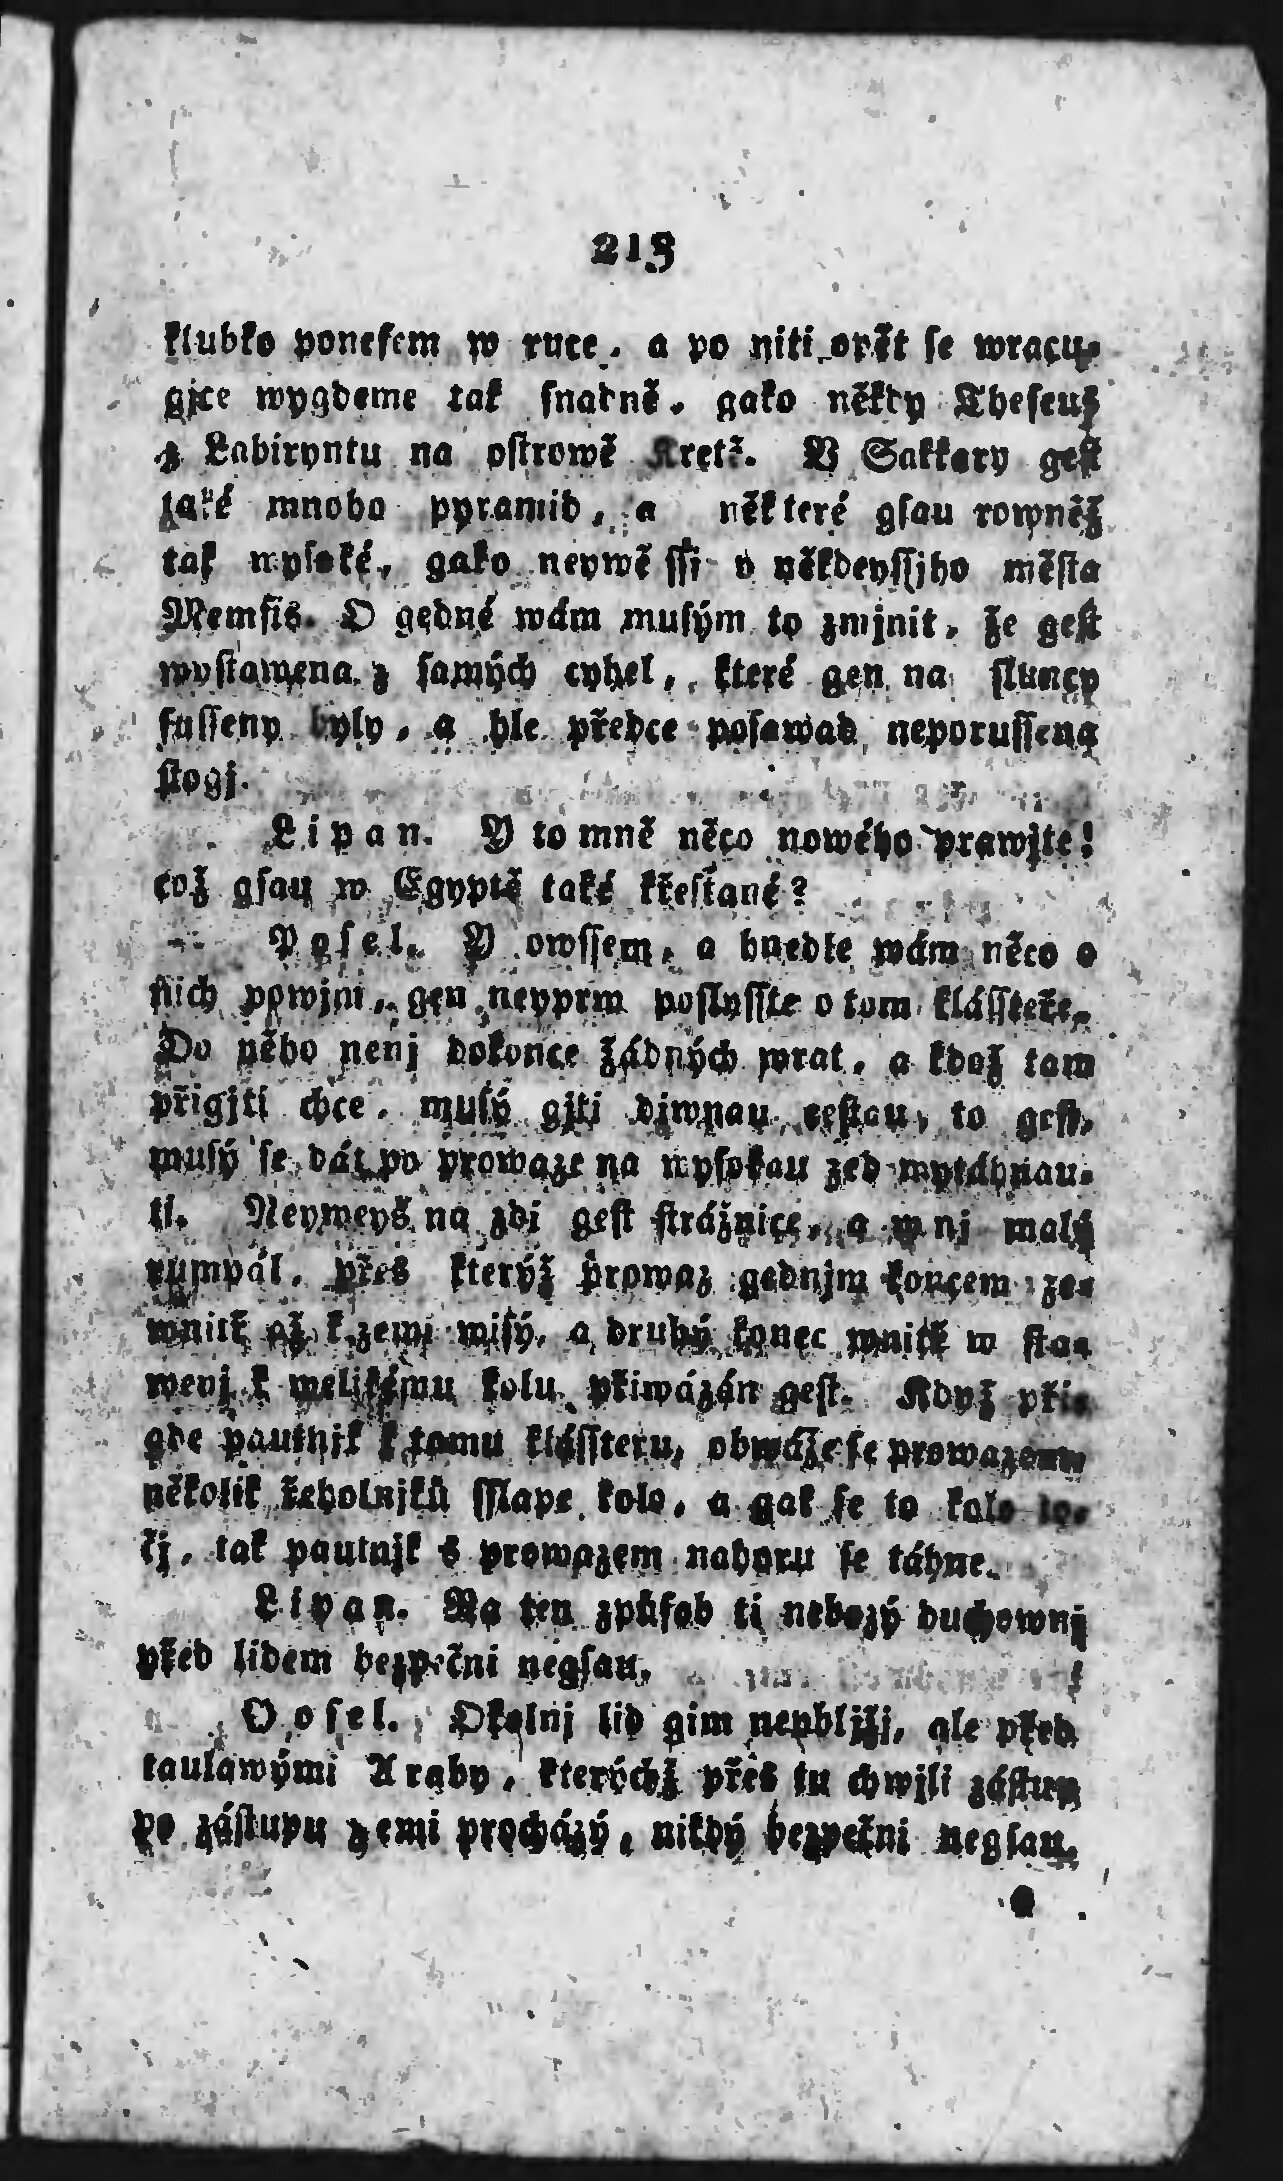 213
klubko ponesem w ruce, a po niti opět se wracu-
gjce wygdeme tak snadně, gako někdy Theseuß
z Labiryntu na ostrowě Kretě. V Sakkary gest
také mnoho pyramid, a některé gsau rowněž
tak wysoké, gako neywěšsi v někdeyssjho města
Memfis. O gedné wám musým to zmjnit, že gest
wystawena z samých cyhel, které gen na sluncy
sussseny byly, a hle předce posawad neporussena
stogj.
Lipan. Y to mně něco nowého prawjte!
což gsau w Egyptě také křestané?
Posel. Y owssem, a hnedle wám něco o
nich powjm, gen neyprw poslysste o tom klássteře.
Do něho nenj dokonce žádných wrat, a kdož tam
přigjti chce, musý gjti diwnau cestau, to gest,
musý se dát po prowaze na wysokau zed wytáhnau-
ti. Neyweyš na zdi gest strážnice, a w nj malý
rumpál, přes kterýž prowaz gednjm koncem ze-
wnitř až k zemi wisý, a druhý konec wnitř w sta-
wenj k welikému kolu přiwázán gest. Když při-
gde pautnjk k tomu klássteru, obwáže se prowazem
několik řeholnjků sslape kolo, a gak se to kolo to-
čj, tak pautnjk s prowazem nahoru se táhne.
Lipan. Na ten způsob ti nebozý duchownj
před lidem bezpečni negsau.
Posel. Okolnj lid gim neubljži, ale před
taulawými Araby, kterýchž přes tu chwjli zástup
po zástupu zemi procházý, nikdý bezpečni negsau.
a